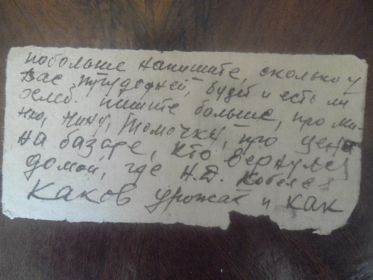 побольше напишите, сколько у
Вас трудодней, будет и есть ли
хлеб. пишите больше, про Ми-
Нину, Томочку, про цены
на базаре, кто вернулся
домой, где Н.Д. Кобелев
Каков урожай и как